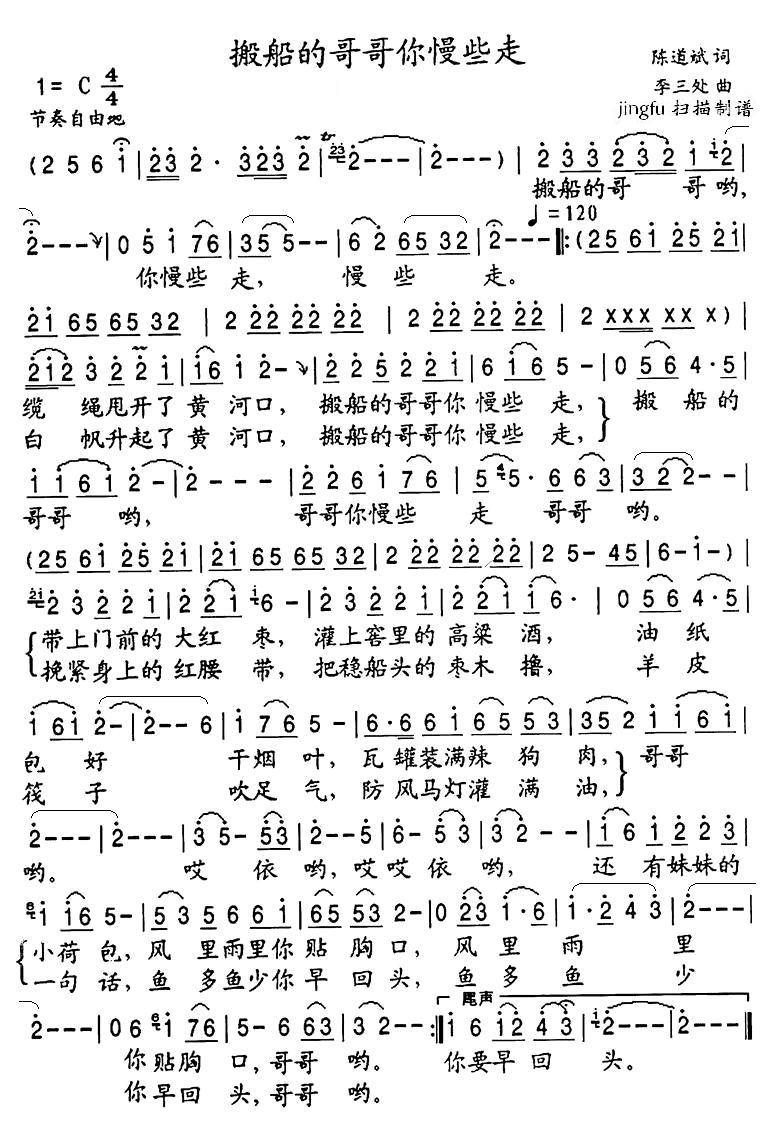 搬船的哥哥你慢些走
陈道斌 词
1= C 4/4
李三处 曲
节奏自由地
jingfu 扫描制谱
(2 5 6 i | 23 2· 323 2 | 23 2--- | 2---) | 2 33 232 1 i2
搬船的哥 哥哟,
♩=120
2--- | 0 5 i 76 | 35 5-- | 6 2 65 32 | 2--- |: (25 6i 25 2i |
你慢些 走, 慢 些 走。
2i 65 65 32 | 2 22 22 22 | 2 22 22 22 | 2 xxx xx x) |
2i2 32 22 i | i6 i 2- | 22 52 22 i | 6 i65 5- | 0 56 4·5 |
缆 绳甩开了 黄 河口, 搬船的哥哥你 慢些 走, 搬 船 的
白 帆升起了 黄 河口, 搬船的哥哥你 慢些 走,
i i6i 2- | 2--- | 22 6i 76 | 5 45· 66 3 | 3 22-- |
哥哥 哟, 哥哥你慢些 走 哥哥 哟。
(25 6i 25 2i | 2i 65 65 32 | 2 22 22 22 | 2 5- 45 | 6-i-) |
2i 23 22 i | 2 2i i6- | 23 22 i | 2 2i i6· | 0 56 4·5 |
带上门前的 大红 枣, 灌上窖里的 高粱 酒, 油 纸
挽紧身上的 红腰 带, 把稳船头的 枣木 撸, 羊 皮
i 6i 2- | 2--6 | i 76 5- | 6·6 6i 65 53 | 35 2 i i6i |
包 好 干烟 叶, 瓦 罐装满辣 狗 肉, 哥哥
筏 子 吹足 气, 防 风马灯灌 满 油,
2--- | 2--- | 3 5- 53 | 2--5 | 6- 53 3 | 32-- | i6 12 23 |
哟。 哎 依 哟, 哎哎 依 哟, 还 有妹妹的
6 i i6 5- | 53 56 66 i | 65 53 2- | 0 23 i·6 | i·2 43 | 2--- |
小荷 包, 风 里雨里你 贴 胸 口, 风 里 雨 里
一句 话, 鱼 多鱼少你 早 回 头, 鱼 多 鱼 少
尾声
2--- | 06 6i 76 | 5- 6 63 | 32-- :| i6 i2 43 i2--- | 2--- |
你 贴胸 口, 哥哥 哟。 你要早 回 头。
你早回 头, 哥哥 哟。